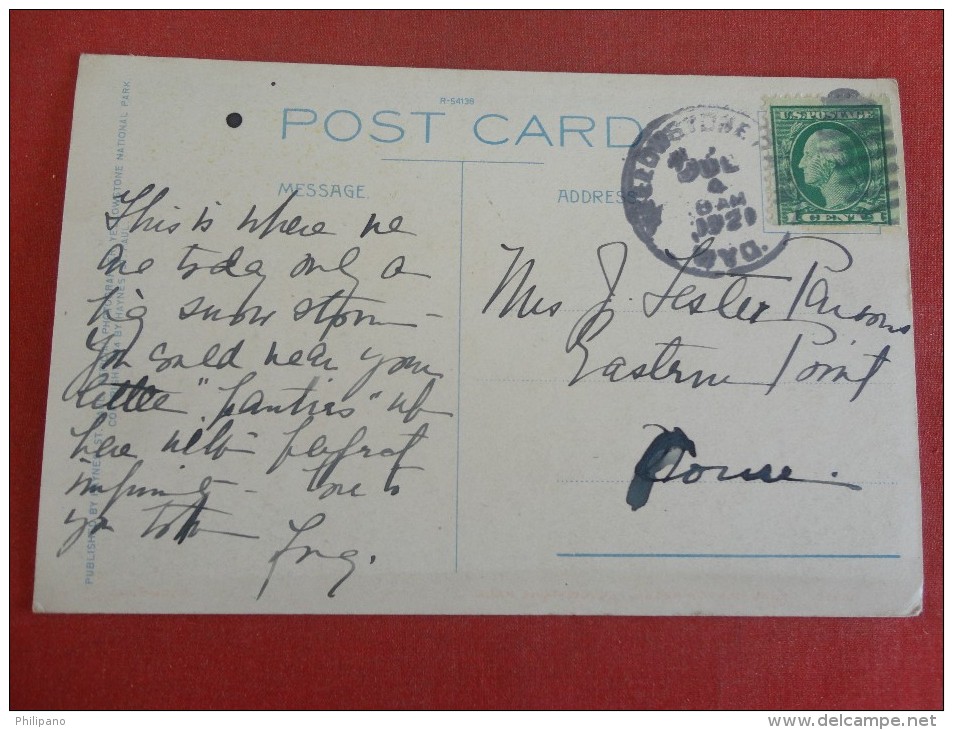 R-54139
POST CARD
MESSAGE
ADDRESS
YELLOWSTONE
JUL
4
8 AM
1921
U.S. POSTAGE
1 CENT 1
This is where we
are today only a
big snow storm -
You could wear your
little "panties" up
here with perfect
- Love to
you both
Mrs J. Lester Parsons
Eastern Point
Conn.
PUBLISHED BY HAYNES, ST.
YELLOWSTONE NATIONAL PARK
BY HAYNES
Philipano
www.delcampe.net